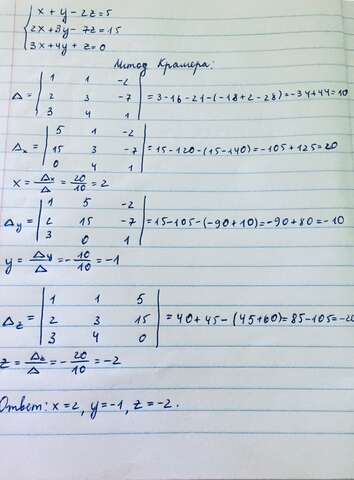 x + y - 2z = 5
2x + 3y - 7z = 15
3x + 4y + z = 0
Метод Крамера:
Δ = | 1 1 -2 |
| 2 3 -7 | = 3-16-21-(-18+2-28)=-34+44=10
| 3 4 1 |
Δx = | 5 1 -2 |
| 15 3 -7 | = 15-120-(15-140)=-105+125=20
| 0 4 1 |
x = Δx/Δ = 20/10 = 2
Δy = | 1 5 -2 |
| 2 15 -7 | = 15-105-(-90+10)=-90+80=-10
| 3 0 1 |
y = Δy/Δ = -10/10 = -1
Δz = | 1 1 5 |
| 2 3 15 | = 40+45-(45+60)=85-105=-20
| 3 4 0 |
z = Δz/Δ = -20/10 = -2
Ответ: x=2, y=-1, z=-2.